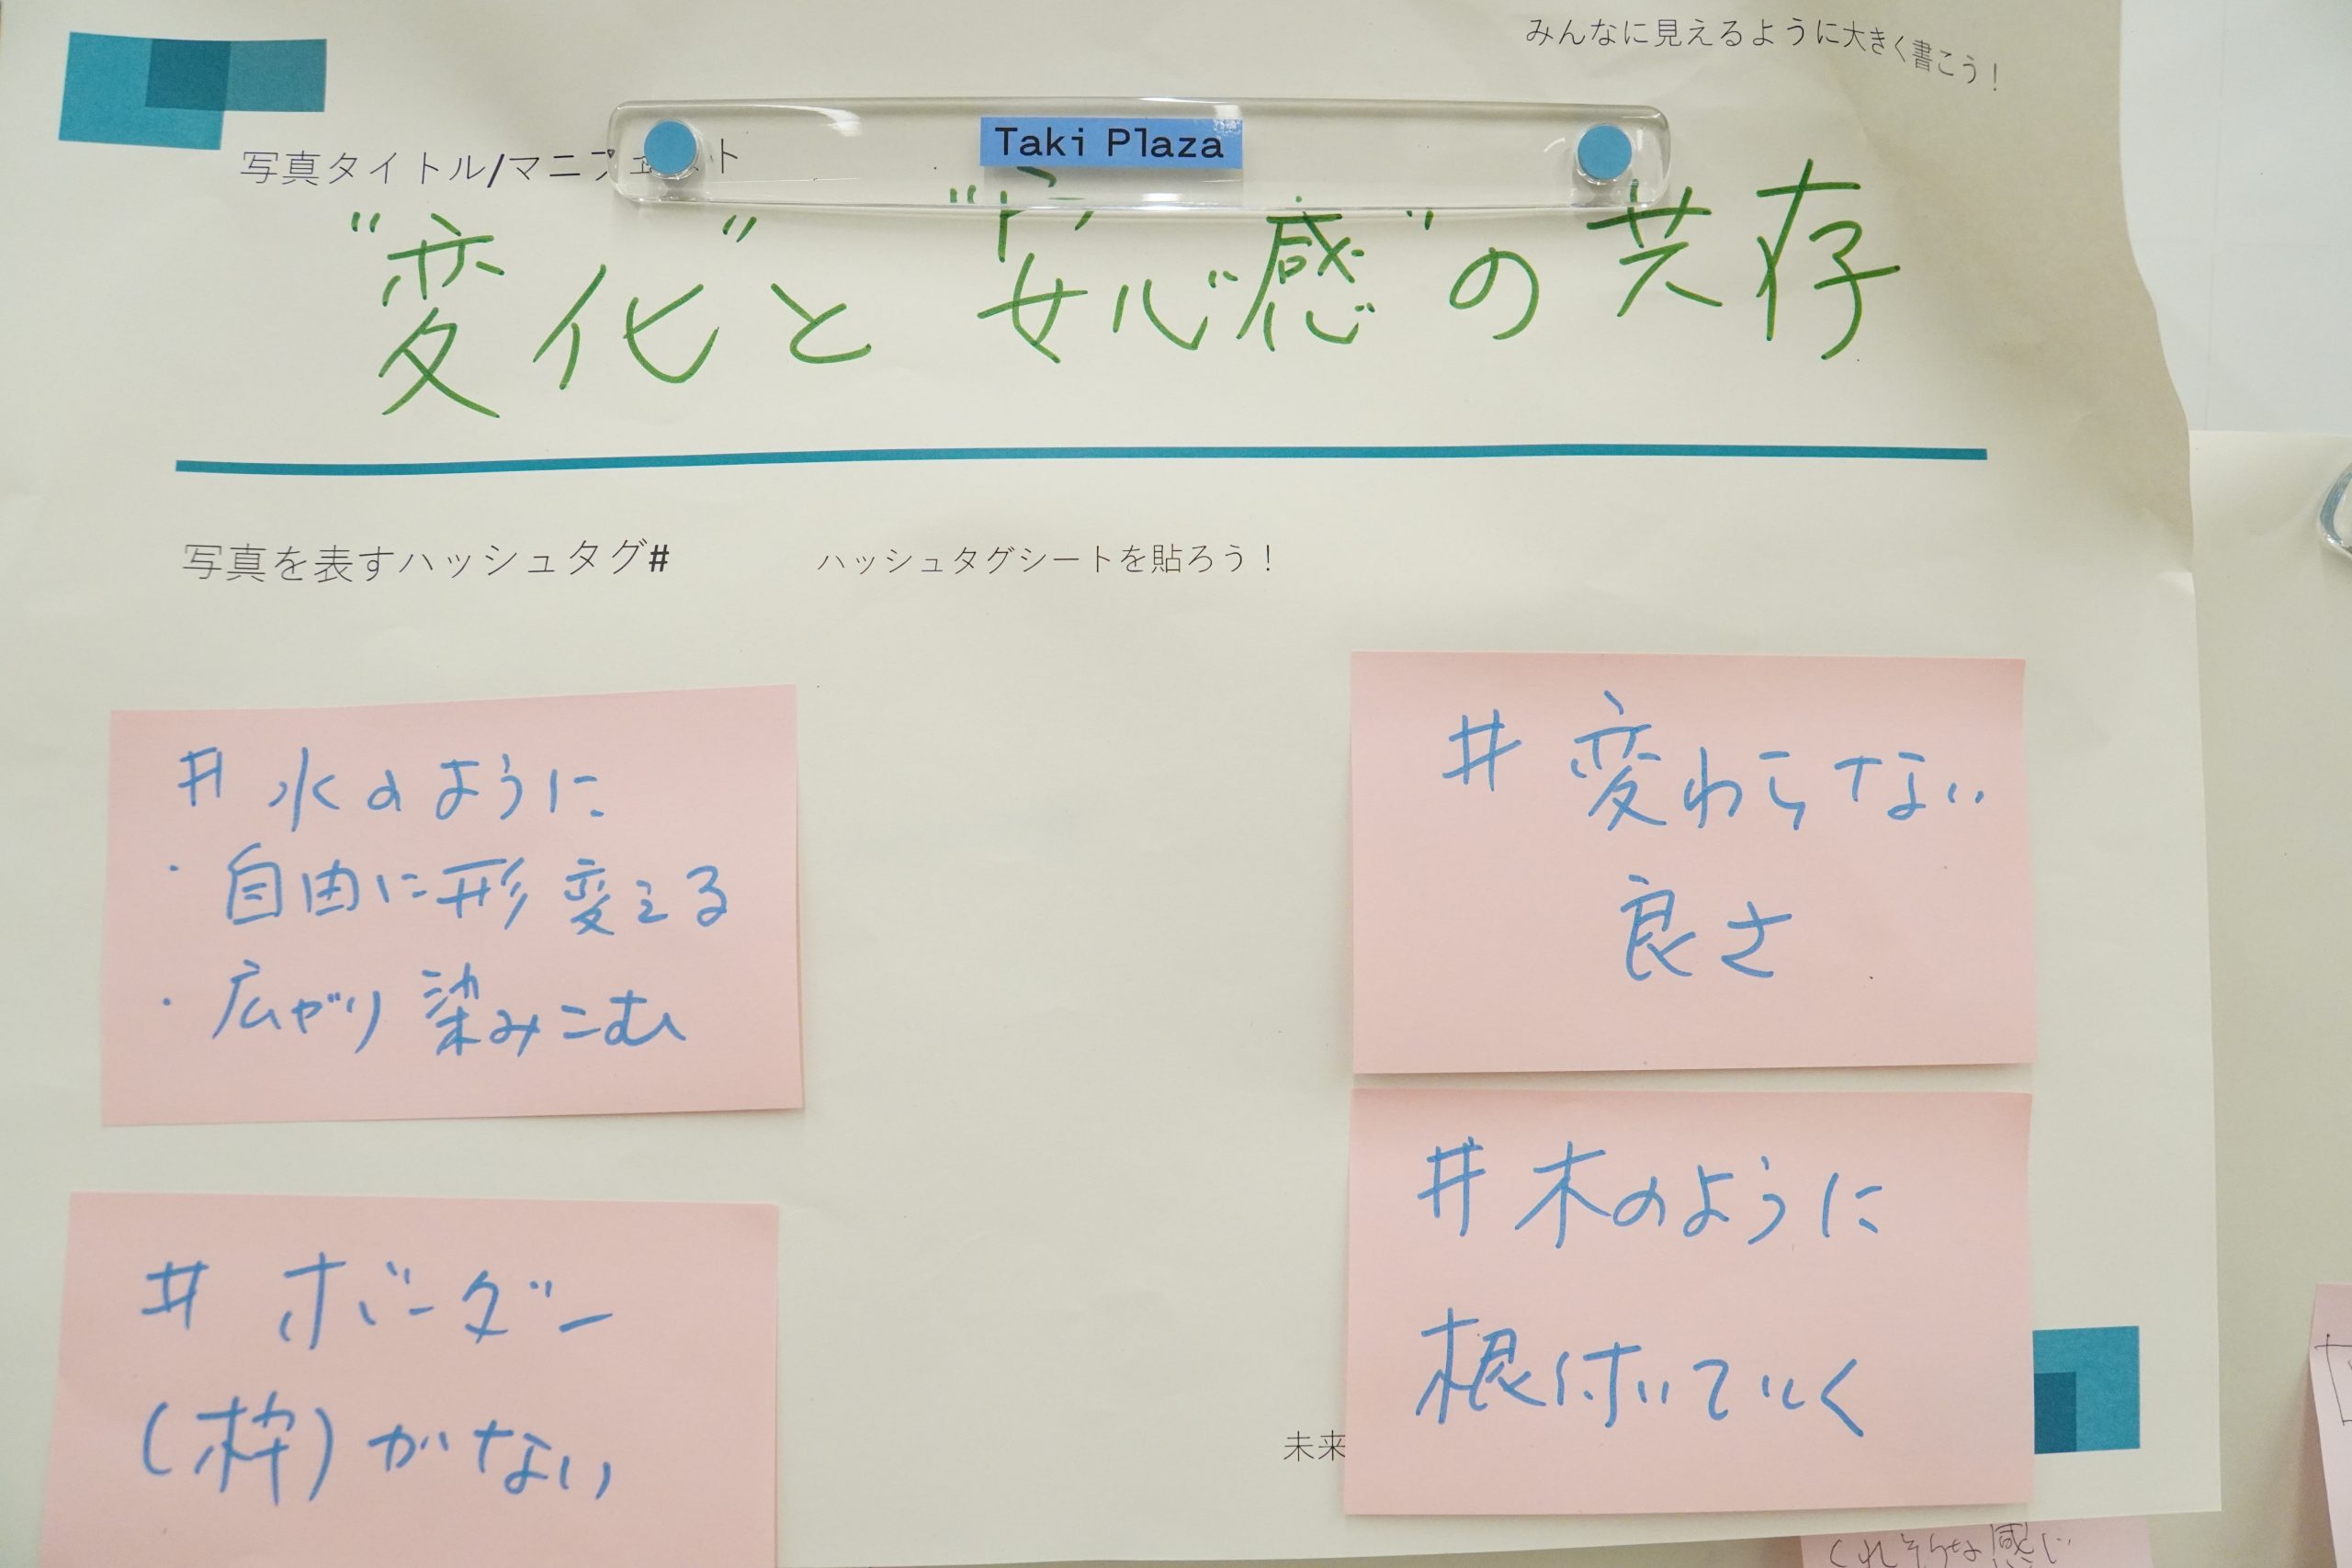 みんなに見えるように大きく書こう！
Taki Plaza
写真タイトル/マニフェスト
"変化"と"安心感"の共存
写真を表すハッシュタグ# ハッシュタグシートを貼ろう！
# 水のように
・自由に形変える
・広がり染みこむ
# ボーダー
(枠)がない
# 変わらない
良さ
# 木のように
根付いていく
未来
くれそうな感じ